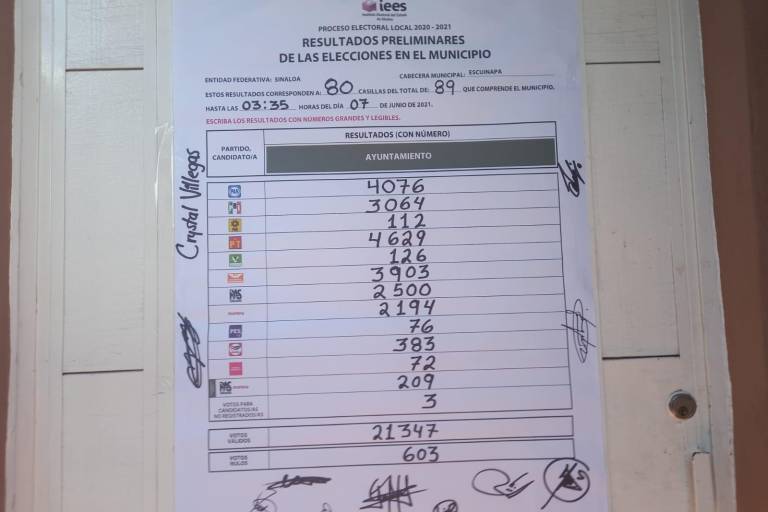 iees
Instituto Electoral del Estado
de Sinaloa
PROCESO ELECTORAL LOCAL 2020 - 2021
RESULTADOS PRELIMINARES
DE LAS ELECCIONES EN EL MUNICIPIO
ENTIDAD FEDERATIVA: SINALOA CABECERA MUNICIPAL: ESCUINAPA
ESTOS RESULTADOS CORRESPONDEN A: 80 CASILLAS DEL TOTAL DE: 89 QUE COMPRENDE EL MUNICIPIO,
HASTA LAS 03:35 HORAS DEL DÍA 07 DE JUNIO DE 2021.
ESCRIBA LOS RESULTADOS CON NÚMEROS GRANDES Y LEGIBLES.
PARTIDO, CANDIDATO/A
RESULTADOS (CON NÚMERO)
AYUNTAMIENTO
PAN 4076
PRI 3064
112
PT 4629
126
3903
PAS 2500
morena 2194
PES 76
383
72
PAS morena 209
VOTOS PARA CANDIDATOS/AS NO REGISTRADOS/AS 3
VOTOS VÁLIDOS 21347
VOTOS NULOS 603
Crystal Villegas